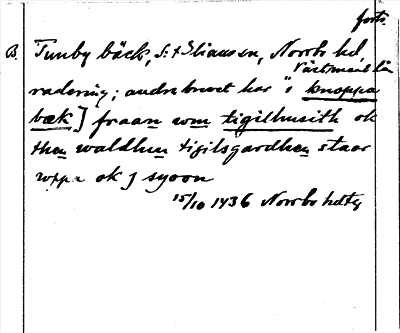 forts.
B. Tunby bäck, S:t Iliansson, Norrbo hd,
Västmanl län
radering; andra brevet har "i knoppa
bæk] fraan wm tigilhusith ok
then waldhen tigilsgardhen staar
wppa ok j syoon
15/10 1436 Norrbo hdtg